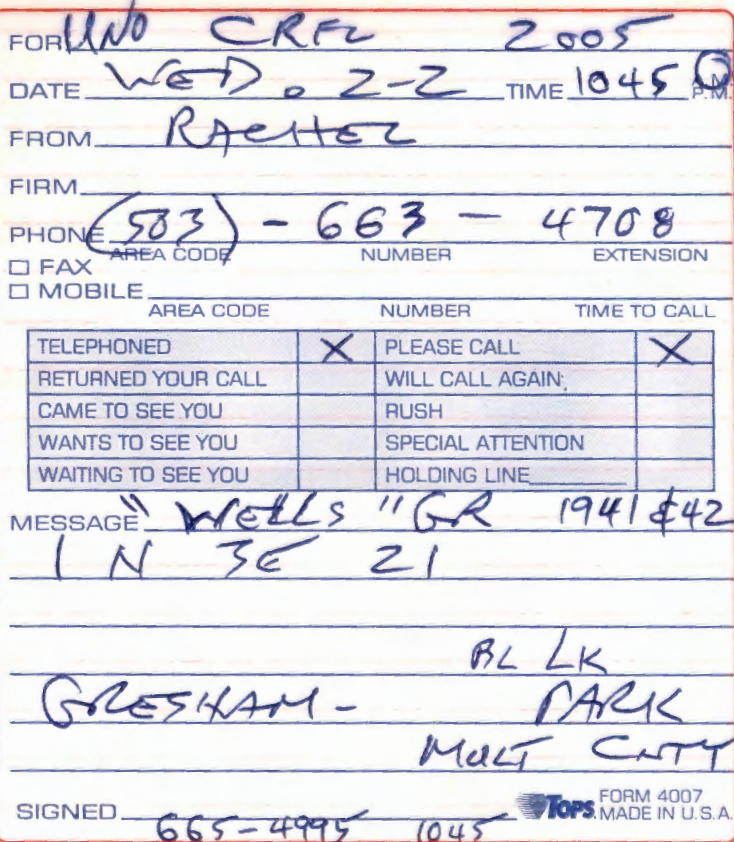 FOR UNO CRFL 2005
DATE WED. 2-2 TIME 1045 P.M.
FROM RACHEL
FIRM
PHONE (503) - 663 - 4708
AREA CODE NUMBER EXTENSION
☐ FAX
☐ MOBILE
AREA CODE NUMBER TIME TO CALL
TELEPHONED X PLEASE CALL X
RETURNED YOUR CALL WILL CALL AGAIN
CAME TO SEE YOU RUSH
WANTS TO SEE YOU SPECIAL ATTENTION
WAITING TO SEE YOU HOLDING LINE
MESSAGE "WELLS" GR 1941 & 42
1 N 3E 21
BL LK
GRESHAM - PARK
MULT CNTY
SIGNED
TOPS FORM 4007
MADE IN U.S.A.
665-4995 1045